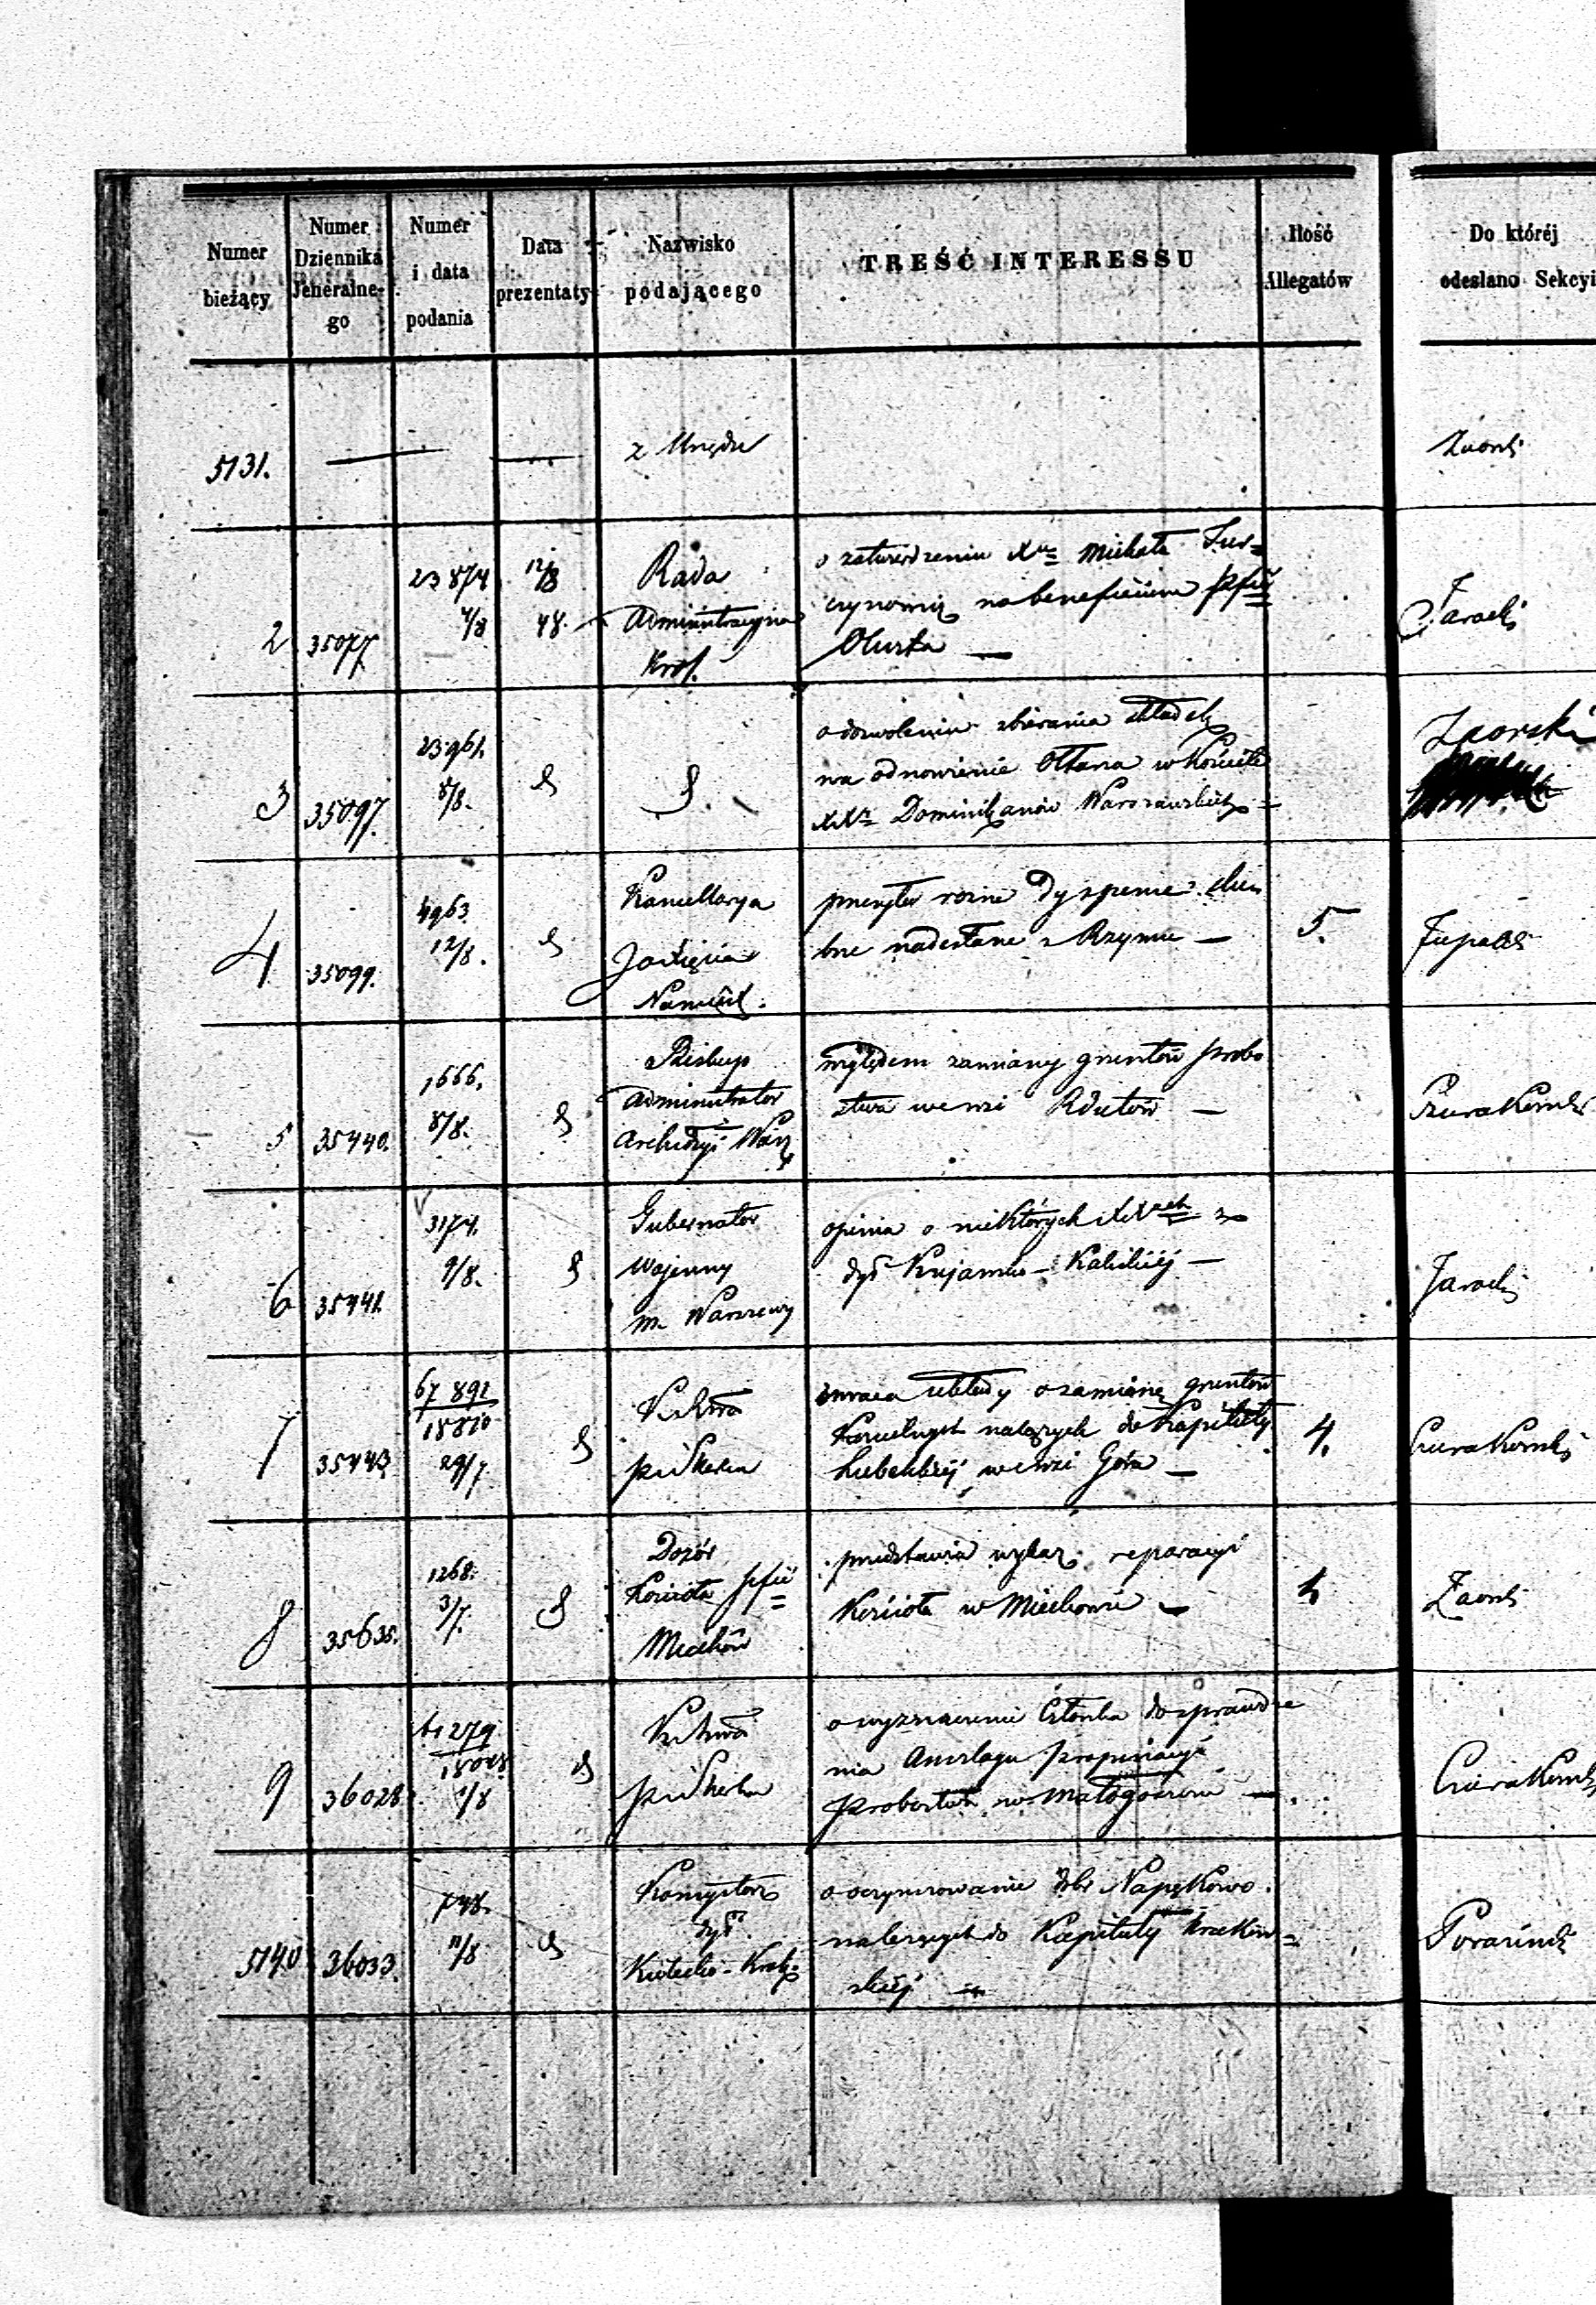 Numer bieżący
Numer Dziennika Jeneralne-go
Numer i data podania
Data prezentaty
Nazwisko podającego
TREŚĆ INTERESSU
Ilość Allegatów
Do któréj odesłano Sekcyi
5131.
z Urzędu
2
35077
23874
7/8
12/8
48.
Rada
Administracyjna
Król.
o zatwierdzeniu Xa Michała
na beneficium
Olszta
Jarocki
3
35097.
23961.
8/8.
o dozwolenie zbierania składek
na odnowienie Ołtarza w Kościele
XXn Dominikanów Warszawskich
Zaorski
4
35099.
4963
12/8.
Kancellarya
JO Księcia
Namiest.
przesyła rózne Dyspense ślu
bne nadesłane z Rzymu —
5.
5
35440.
1666.
8/8.
Biskup
Administrator
Archidyi Warsz
względem zamiany gruntów probo
stwa we wsi Rdutów —
6
35441.
3174.
9/8.
Gubernator
Wojenny
m. Warszawy
opinia o niektórych XXach z
dyi Kujawsko-Kaliskiéj —
Jarocki
7
35443
67 892
15810
29/7
zwraca układy o zamianę gruntów
Kościelnych należących do Kapituły
Lubelskiéj we wsi Góra —
4.
8
35635.
1268.
3/7.
Dozór
Kościoła pfii
Miechów
przedstawia wykaz reparacyi
Kościoła w Miechowie —
9
36028
1/8
o wyznaczenie Członka do sprawdze
nia Anszlagu propinacyi
probostwa w Małogoszczu —
5140
36033.
748.
11/8
Konsystorz
dyi
Kielecko-Krak:
o oczynszowanie dóbr Napękowo
należących do Kapituły Krakow=
skiéj —